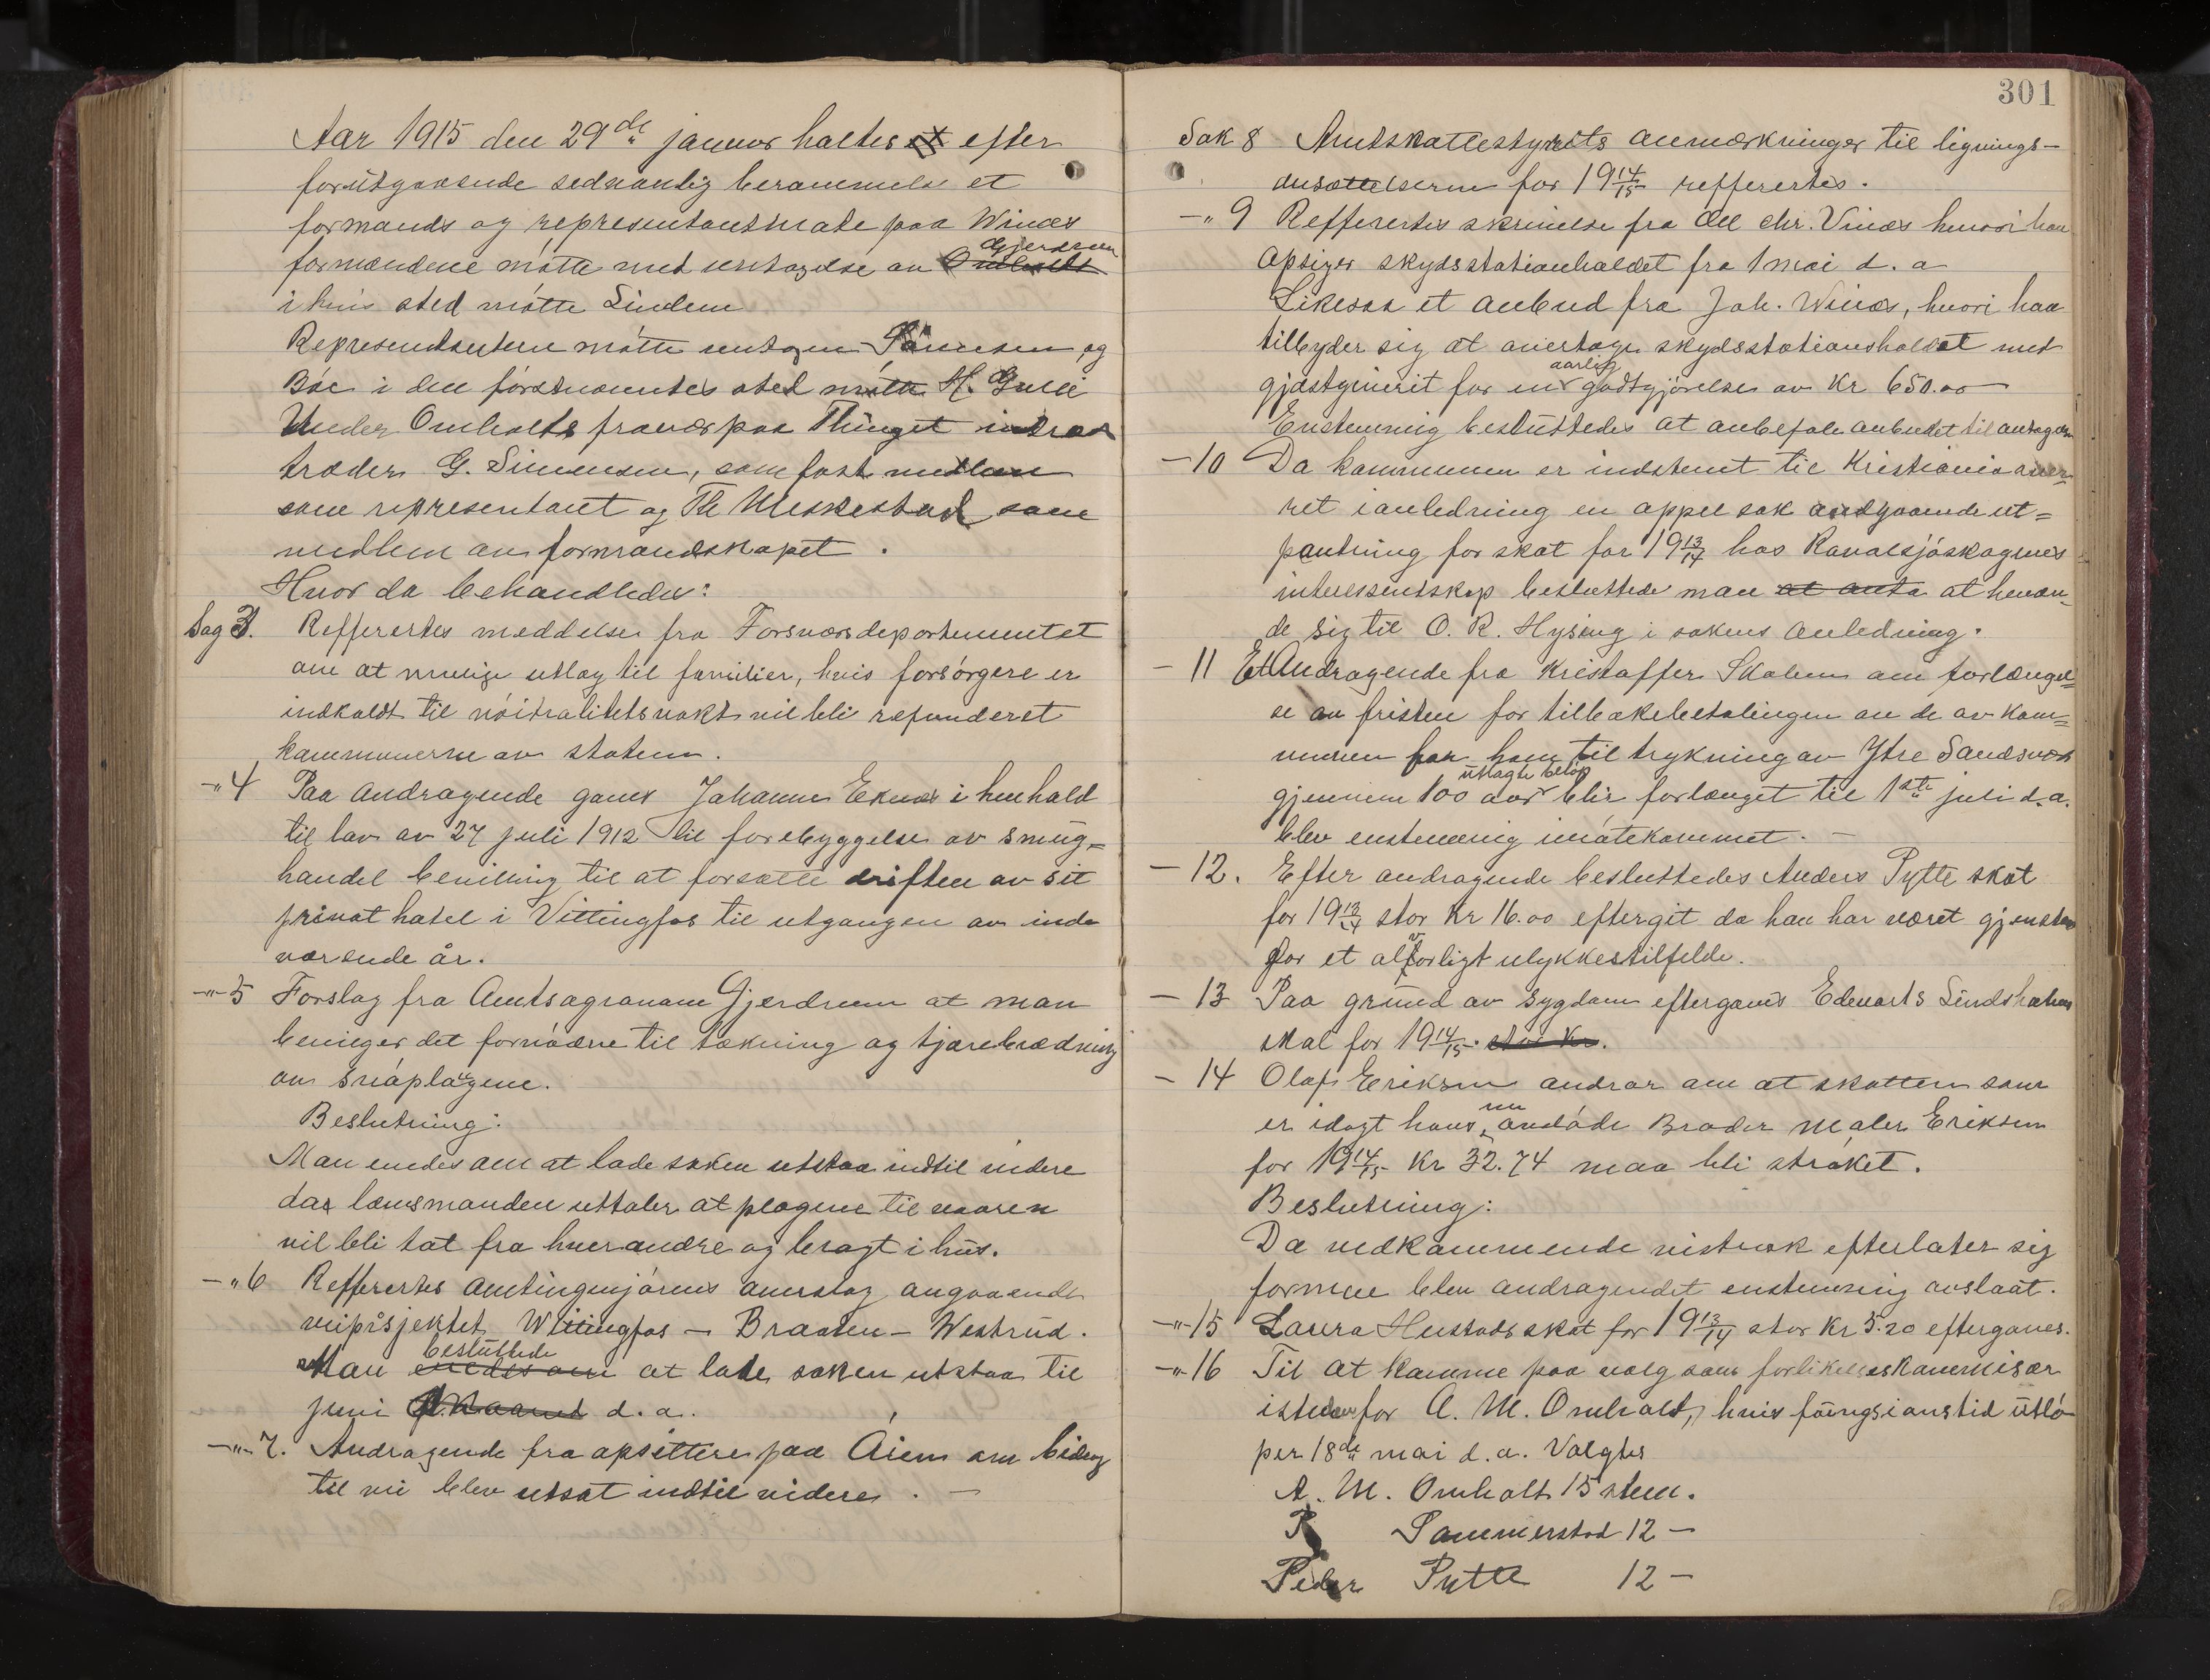 Aar 1915 den 29de januar holtes efter
forutgaaende sedvanlig berammelse et
formands og representantmøte paa Winæs
formændene møtte med untagelse av Omholt Gjerdrum
i hvis sted møtte Lindem
Representanterne møtte untagen og
Bøe i den førstnævntes sted møtte H. Gulli
Under Omholts fravær paa Thinget
træder G. Simensen, som fast medlem
som representant og Th Meskestad som
medlem av formandskapet.
Hvor da behandledes:
Sag 3. Refferertes meddelse fra Forsvarsdepartementet
om at mulige utlæg til familier, hvis forsørgere er
indkaldt til nøitralitetsvakt vil bli refunderet
kommunerne av staten.
-"- 4 Paa andragende gaves Johannes Eknæs i henhold
til lov av 27 juli 1912 til forebyggelse av smug-
handel bevilling til at forsætte driften av sit
privat hotel i Vittingfos til utgangen av inde
værende år.
-"- 5 Forslag fra Amtsagronom Gjerdrum at man
beviiger det fornødne til tækning og tjærebrædning
av snøplogene.
Beslutning:
Man enedes om at lade saken utstaa indtil videre
da lensmanden uttaler at plogene til vaaren
vil bli tat fra hverandre og bragt i hus.
-"- 6 Refferertes amtingeniørens overslag angaaende
veiprosjektet Wittingfos – Braaten – Westrud.
Man enedes om besluttede at late saken utstaa til
juni d. a.
-"- 7. Andragende fra opsittere paa Åsen om bidrag
til vei blev utsat indtil videre. —
301
Sak 8 Amtskattestyrets anmerkninger til lignings-
ansættelserne for 1914/15 refferertes.
-"- 9 Refferertes skrivelse fra Ole Chr. Vinæs hvori han
opsiger skydsstationholdet fra 1 mai d. a
Likesaa et anbud fra Joh. Winæs, hvori han
tilbyder sig at overtage skydsstationsholdet med
gjæstgiveri for en aarlig godtgjørelse av Kr 650.00
Enstemmig besluttedes at anbefale anbudet til antagelse
- 10 Da kommunen er indstemt til Kristiania over-
ret i anledning en appel sak angaaende ut=
pantning for skat for 1913/14 hos Ravalsjøskogenes
interessentskap besluttede man at anta at henven-
de sig til O. K. Hysing i sakens anledning.
- 11 Et Andragende fra Kristoffer Skolem om forlængel=
se av fristen for tilbakebetalingen av de av kom=
munen for ham til trykning av Ytre Sandsvær
gjennem 100 aar utlagte beløp blir forlænget til 1ste juli d. a.
blev enstemmig imøtekommet. —
- 12. Efter andragende besluttedes Anders Pytte skat
for 1913/14 stor Kr 16.00 eftergit da han har været gjenstand
for et alvorligt ulykkestilfelde.
- 13 Paa grund av sygdom eftergaves Edvarts
skat for 1914/15. stor Kr.
- 14 Olaf Eriksen andrar om at skatten som
er ilagt hans nu avdøde Broder Maler Eriksen
for 1914/15 Kr 32.74 maa bli strøket.
Beslutning:
Da vedkommende vistnok efterlater sig
formue blev andragendet enstemmig avslaat.
-"- 15 Laura Hustads skat for 1913/14 stor Kr 5.20 eftergaves.
-"- 16 Til at komme paa valg som forlikelseskommisær
istedenfor A. M. Omholt, hvis fungsjonstid utlø
per 18de mai d. a. Valgtes
A. M. Omholt 15 stem.
Sommerstad 12 —
Peder Pytte 12 —